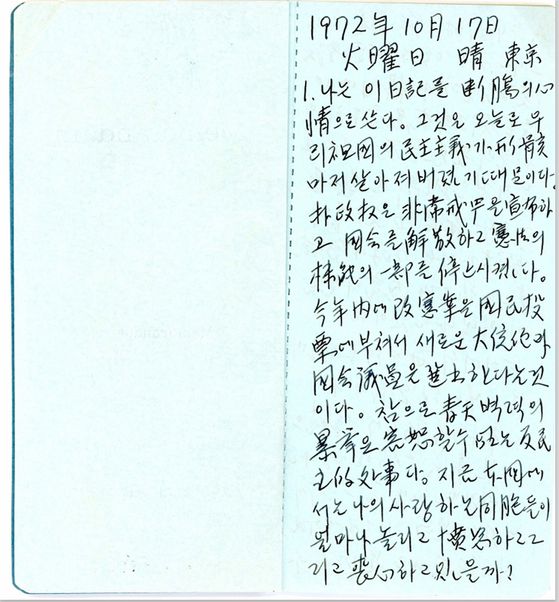 1972年 10月 17日
火曜日 晴 東京
1. 나는 이 日記를 断腸의 心
情으로 쓴다。그것은 오늘로 우
리 祖國의 民主主義가 形骸
마저 살아져 버렸기 때문이다。
朴政权은 非常戒严을 宣布하
고 国会를 解散하고 憲法의
機能의 一部를 停止시켰다。
今年内에 改憲案을 国民投
票에 부쳐서 새로운 大統領과
国会議員을 選出한다는 것
이다。참으로 青天벽력의
暴挙요 容恕할 수 없는 反民
主的 处事다. 지금 本国에
서는 나의 사랑하는 同胞들이
얼마나 놀라고 憤怒하고 그
리고 喪心하고 있을까!